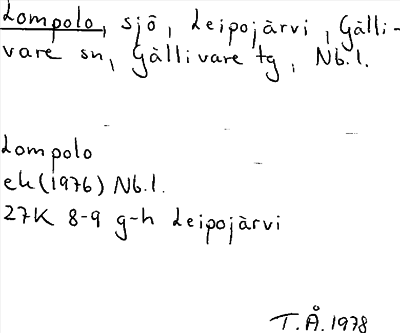 Lompolo, sjö, Leipojärvi, Gälli-
vare sn, Gällivare tg, Nb.l.
Lompolo
ek (1976) Nb.l.
27K 8-9 g-h Leipojärvi
T.Å. 1978